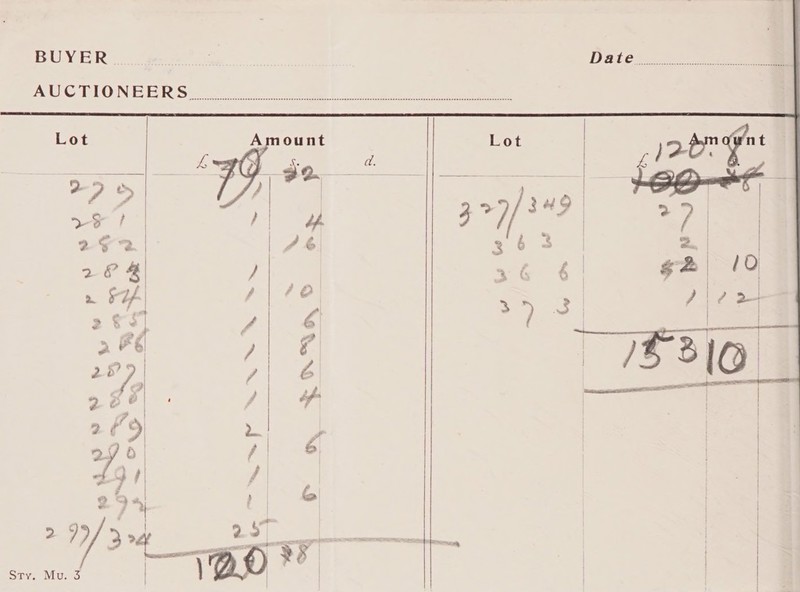 BUYER Date
AUCTIONEERS
Lot Amount Lot Amount
£ s. d. £
79 120. 8
279 1
281 1 4 327/349 27
282 16 363 2
283 1 366 2 10
284 1 10 373 1 12
285 1 6
286 1 8 153 10
287 1 6
288 1 4
289 2
290 1 6
291 1
292 1 6
299/324 25
120 8
STY. MU. 3